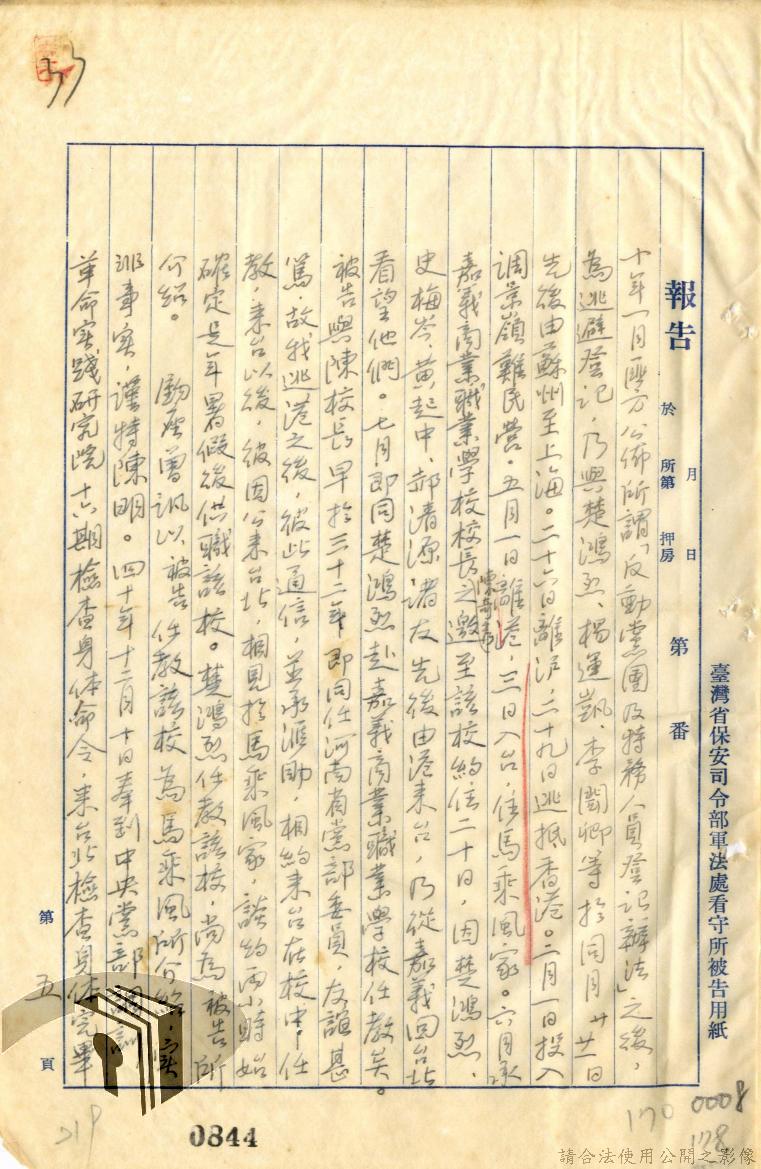 臺灣省保安司令部軍法處看守所被告用紙
報告 於 月 日 所第 押房 第 番
十年一月匪方公佈所謂「反動黨團及特務人員登記辦法」之後，
為逃避登記，乃與楚鴻烈、楊運凱、李閣卿等於同月廿廿一日
先後由蘇州至上海。二十六日離沪，二十九日逃抵香港。二月一日投入
調景嶺難民營。五月一日離港，三日入台，住馬乘風家。六月承
嘉義商業職業學校校長陳奇秀之邀至該校約住二十日，因楚鴻烈、
史梅岑、黃起中、郝濤源諸友先後由港來台，乃從嘉義回台北
看望他們。七月即同楚鴻烈赴嘉義商業職業學校任教矣。
被告與陳校長早於三十二年即同任河南省黨部委員，友誼甚
篤，故我逃港之後，彼此通信，並承滙助，相約來台在校中任
教，來台以後，彼因公來台北，相見於馬乘風家，談約兩小時始
確定是年暑假後供職該校。楚鴻烈任教該校，尚為被告所
介紹。 鈞座曾訊以被告任教該校為馬乘風所介紹，實
非事實，謹特陳明。四十年十二月十日奉到中央黨部調訓，
革命實踐研究院十六期檢查身体命令，來台北檢查身体完畢
第 五 頁
0844
219
170
0008
178
請合法使用公開之影像